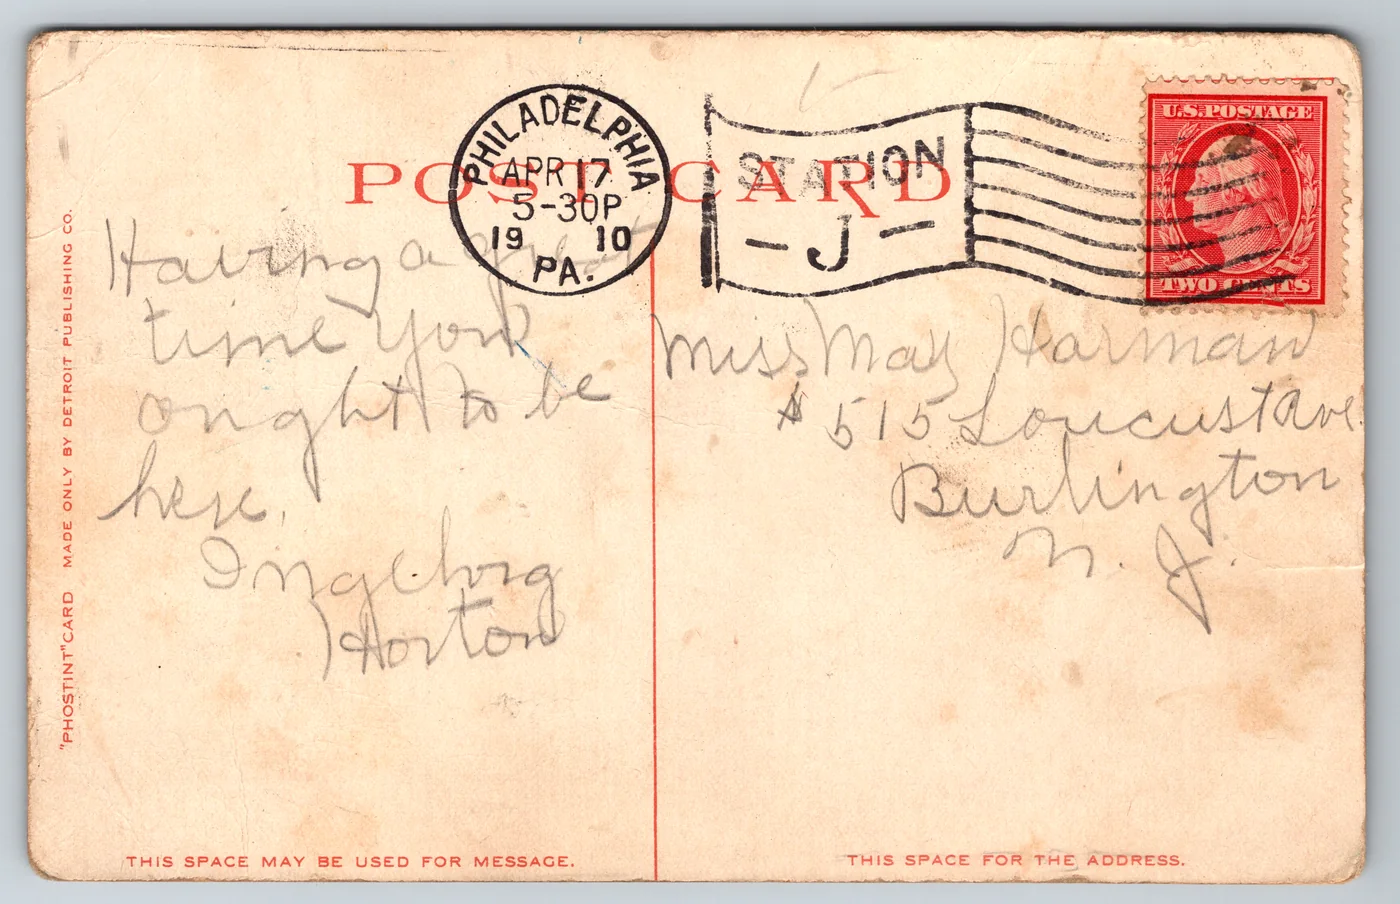 POST CARD
PHILADELPHIA
APR 17
5-30P
19 10
PA.
STATION
- J -
U.S. POSTAGE
TWO CENTS
Having a great
time You
ought to be
here.
Ingeborg
Horton
Miss May Harman
# 515 Loucust Ave.
Burlington
N. J.
"PHOSTINT" CARD MADE ONLY BY DETROIT PUBLISHING CO.
THIS SPACE MAY BE USED FOR MESSAGE.
THIS SPACE FOR THE ADDRESS.